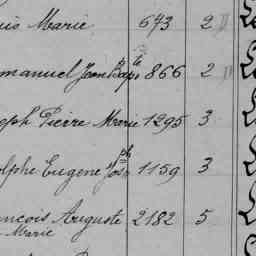 uis Marie 643 2
manuel Jean Bapte 866 2
eph Pierre Marie 1295 3
olphe Eugene Josph 1159 3
ancois Auguste 2182 5
Marie